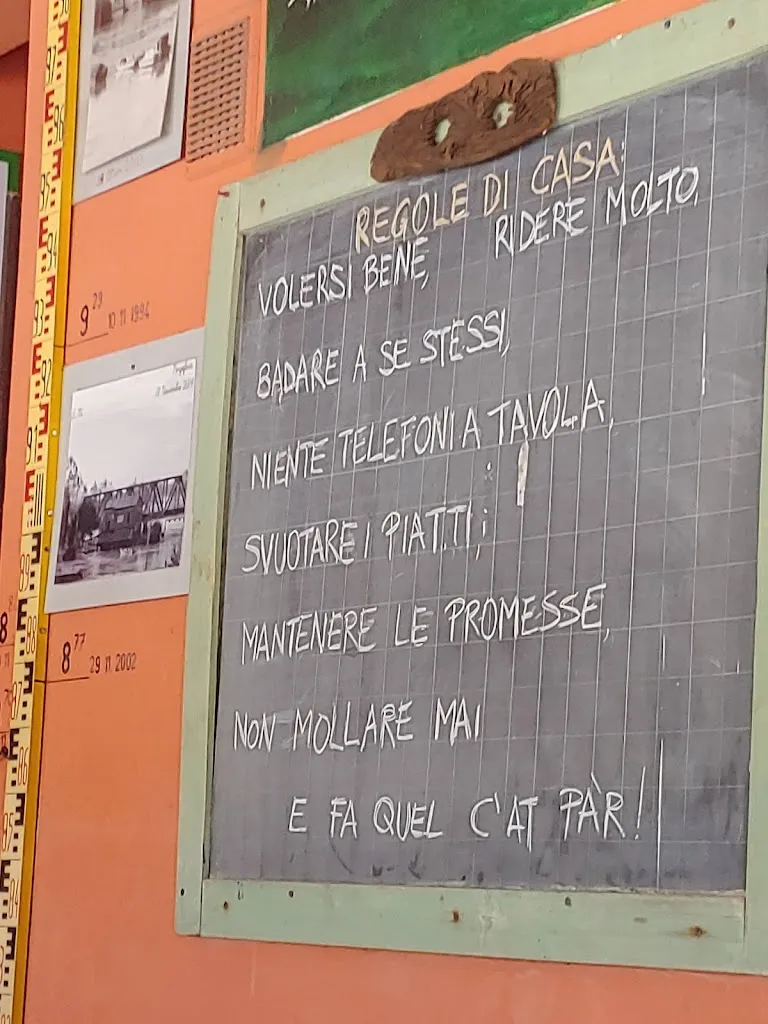 REGOLE DI CASA:
VOLERSI BENE, RIDERE MOLTO,
BADARE A SE STESSI,
NIENTE TELEFONI A TAVOLA,
SVUOTARE I PIATTI;
MANTENERE LE PROMESSE,
NON MOLLARE MAI
E FA QUEL C'AT PÀR!
9 29 10 11 1994
8 77 29 11 2002
97
96
95
94
93
92
91
89
88
87
86
85
84